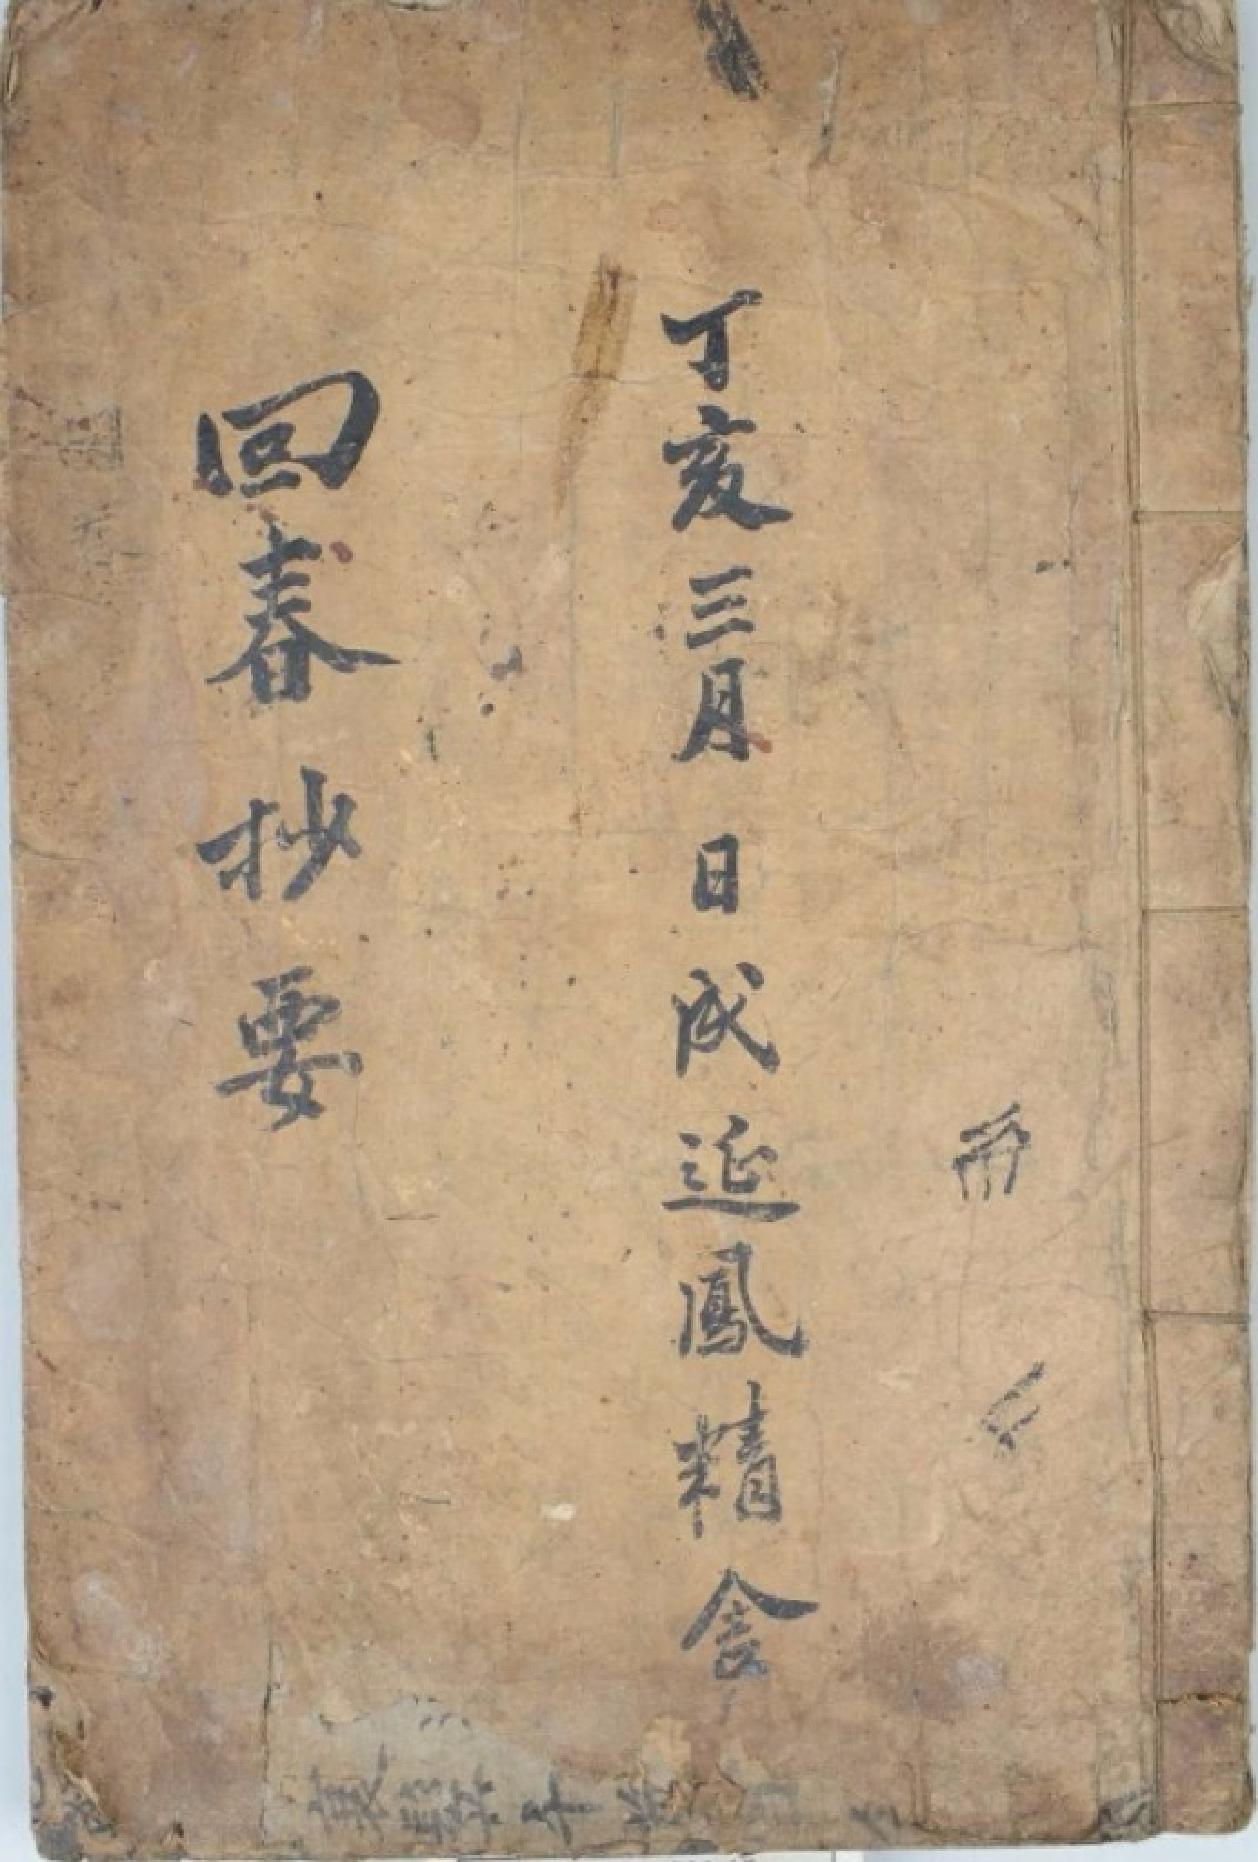 丁亥三月 日成延鳳精舍
回春抄要